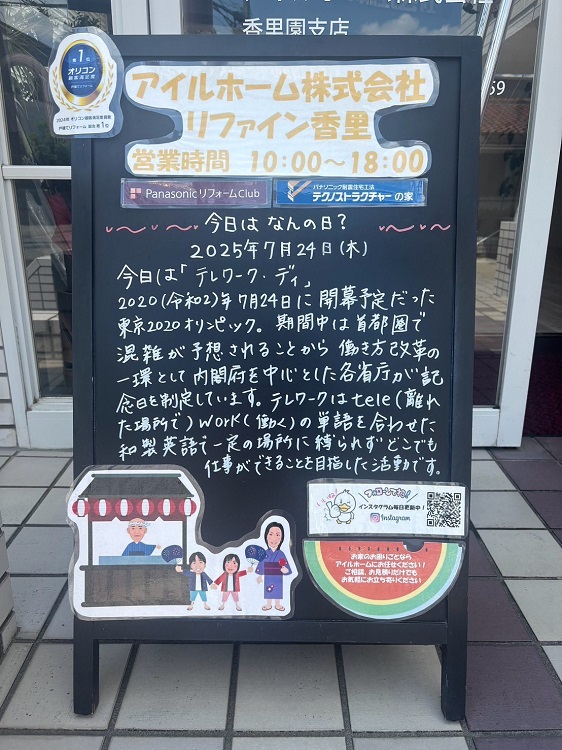 香里園支店
59
第1位
オリコン
顧客満足度
戸建てリフォーム
2024年 オリコン顧客満足度調査
戸建てリフォーム 総合 第1位
アイルホーム株式会社
リファイン香里
営業時間 10:00～18:00
Panasonic リフォームClub
パナソニック耐震住宅工法
テクノストラクチャーの家
今日は なんの日?
2025年7月24日(木)
今日は「テレワーク・デイ」
2020(令和2)年7月24日に開幕予定だった
東京2020オリンピック。期間中は首都圏で
混雑が予想されることから 働き方改革の
一環として内閣府を中心とした各省庁が記
念日を制定しています。テレワークはtele(離れ
た場所で)work(働く)の単語を合わせた
和製英語で一定の場所に縛られずどこでも
仕事ができることを目指した活動です。
フォローしてね!
インスタグラム毎日更新中!
Instagram
お家のお困りごとなら
アイルホームにお任せください!
ご相談、お見積りだけでも
お気軽にお立ち寄りください